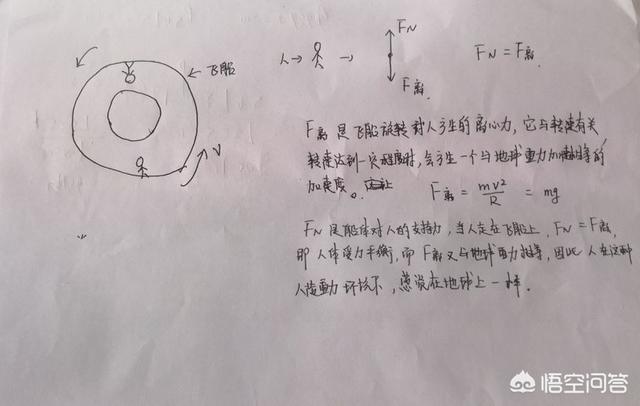 飞船
V
人→ → F_N F离 F_N = F离
F离 是飞船旋转对人产生的离心力，它与转速有关
转速达到一定程度时，会产生一个与地球重力加速相等的
加速度。 F离 = mv²/R = mg
F_N 是船体对人的支持力，当人走在飞船上，F_N = F离，
即人体受力平衡，而 F离 又与地球重力相等，因此人在这种
人造重力环境下，感觉在地球上一样.
悟空问答